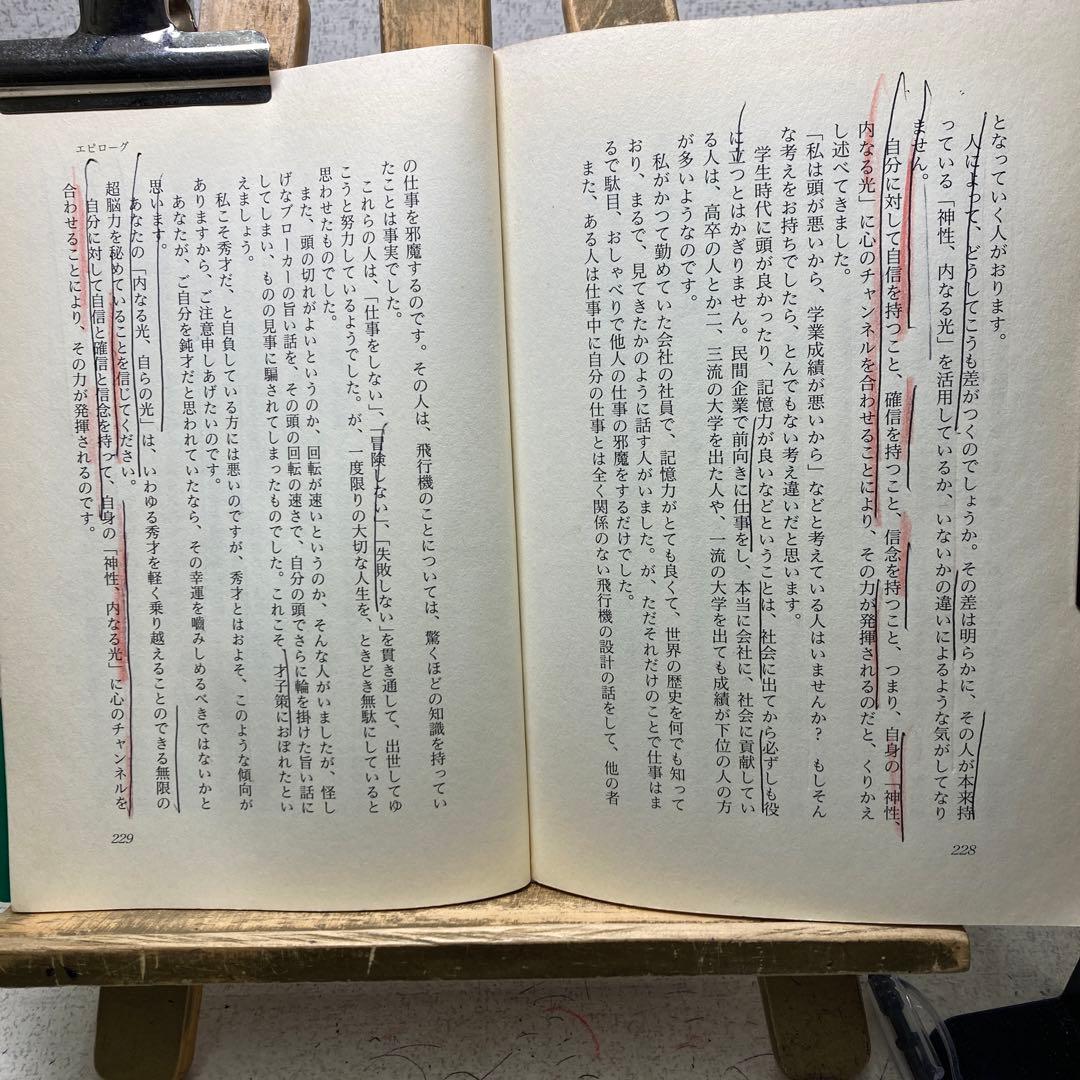 となっていく人がおります。
人によって、どうしてこうも差がつくのでしょうか。その差は明らかに、その人が本来持
っている「神性、内なる光」を活用しているか、いないかの違いによるような気がしてなり
ません。
自分に対して自信を持つこと、確信を持つこと、信念を持つこと、つまり、自身の「神性、
内なる光」に心のチャンネルを合わせることにより、その力が発揮されるのだと、くりかえ
し述べてきました。
「私は頭が悪いから、学業成績が悪いから」などと考えている人はいませんか? もしそん
な考えをお持ちでしたら、とんでもない考え違いだと思います。
学生時代に頭が良かったり、記憶力が良いなどということは、社会に出てから必ずしも役
に立つとはかぎりません。民間企業で前向きに仕事をし、本当に会社に、社会に貢献してい
る人は、高卒の人とか二、三流の大学を出た人や、一流の大学を出ても成績が下位の人の方
が多いようなのです。
私がかつて勤めていた会社の社員で、記憶力がとても良くて、世界の歴史を何でも知って
おり、まるで、見てきたかのように話す人がいました。が、ただそれだけのことで仕事はま
るで駄目、おしゃべりで他人の仕事の邪魔をするだけでした。
また、ある人は仕事中に自分の仕事とは全く関係のない飛行機の設計の話をして、他の者
228
の仕事を邪魔するのです。その人は、飛行機のことについては、驚くほどの知識を持ってい
たことは事実でした。
これらの人は、「仕事をしない」、「冒険しない」、「失敗しない」を貫き通して、出世してゆ
こうと努力しているようでした。が、一度限りの大切な人生を、ときどき無駄にしていると
思わせたものでした。
また、頭の切れがよいというのか、回転が速いというのか、そんな人がいましたが、怪し
げなブローカーの旨い話を、その頭の回転の速さで、自分の頭でさらに輪を掛けた旨い話に
してしまい、ものの見事に騙されてしまったものでした。これこそ、才子策におぼれたとい
えましょう。
私こそ秀才だ、と自負している方には悪いのですが、秀才とはおよそ、このような傾向が
ありますから、ご注意申しあげたいのです。
あなたが、ご自分を鈍才だと思われていたなら、その幸運を嚙みしめるべきではないかと
思います。
あなたの「内なる光、自らの光」は、いわゆる秀才を軽く乗り越えることのできる無限の
超脳力を秘めていることを信じてください。
自分に対して自信と確信と信念を持って、自身の「神性、内なる光」に心のチャンネルを
合わせることにより、その力が発揮されるのです。
エピローグ
229